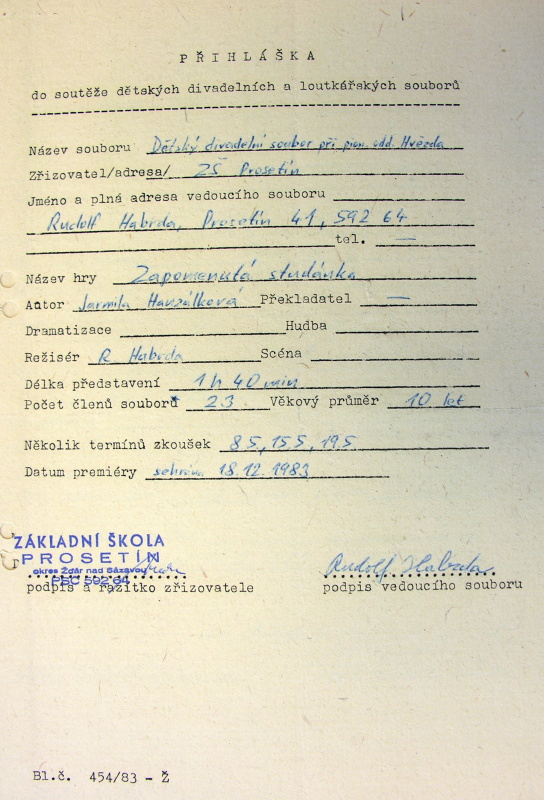 P Ř I H L Á Š K A
do soutěže dětských divadelních a loutkářských souborů
Název souboru Dětský divadelní soubor při pion. odd. Hvězda
Zřizovatel/adresa/ ZŠ Prosetín
Jméno a plná adresa vedoucího souboru
Rudolf Habrda, Prosetín 41, 592 64
tel. —
Název hry Zapomenutá studánka
Autor Jarmila Hanzálková Překladatel —
Dramatizace Hudba
Režisér R Habrda Scéna
Délka představení 1 h 40 min
Počet členů souborů 23 Věkový průměr 10 let
Několik termínů zkoušek 8.5, 15.5, 19.5
Datum premiéry 18.12.1983
ZÁKLADNÍ ŠKOLA
PROSETÍN
okres Žďár nad Sázavou
PSČ 592 64
Rudolf Habrda
podpis a razítko zřizovatele podpis vedoucího souboru
Bl.č. 454/83 - Ž